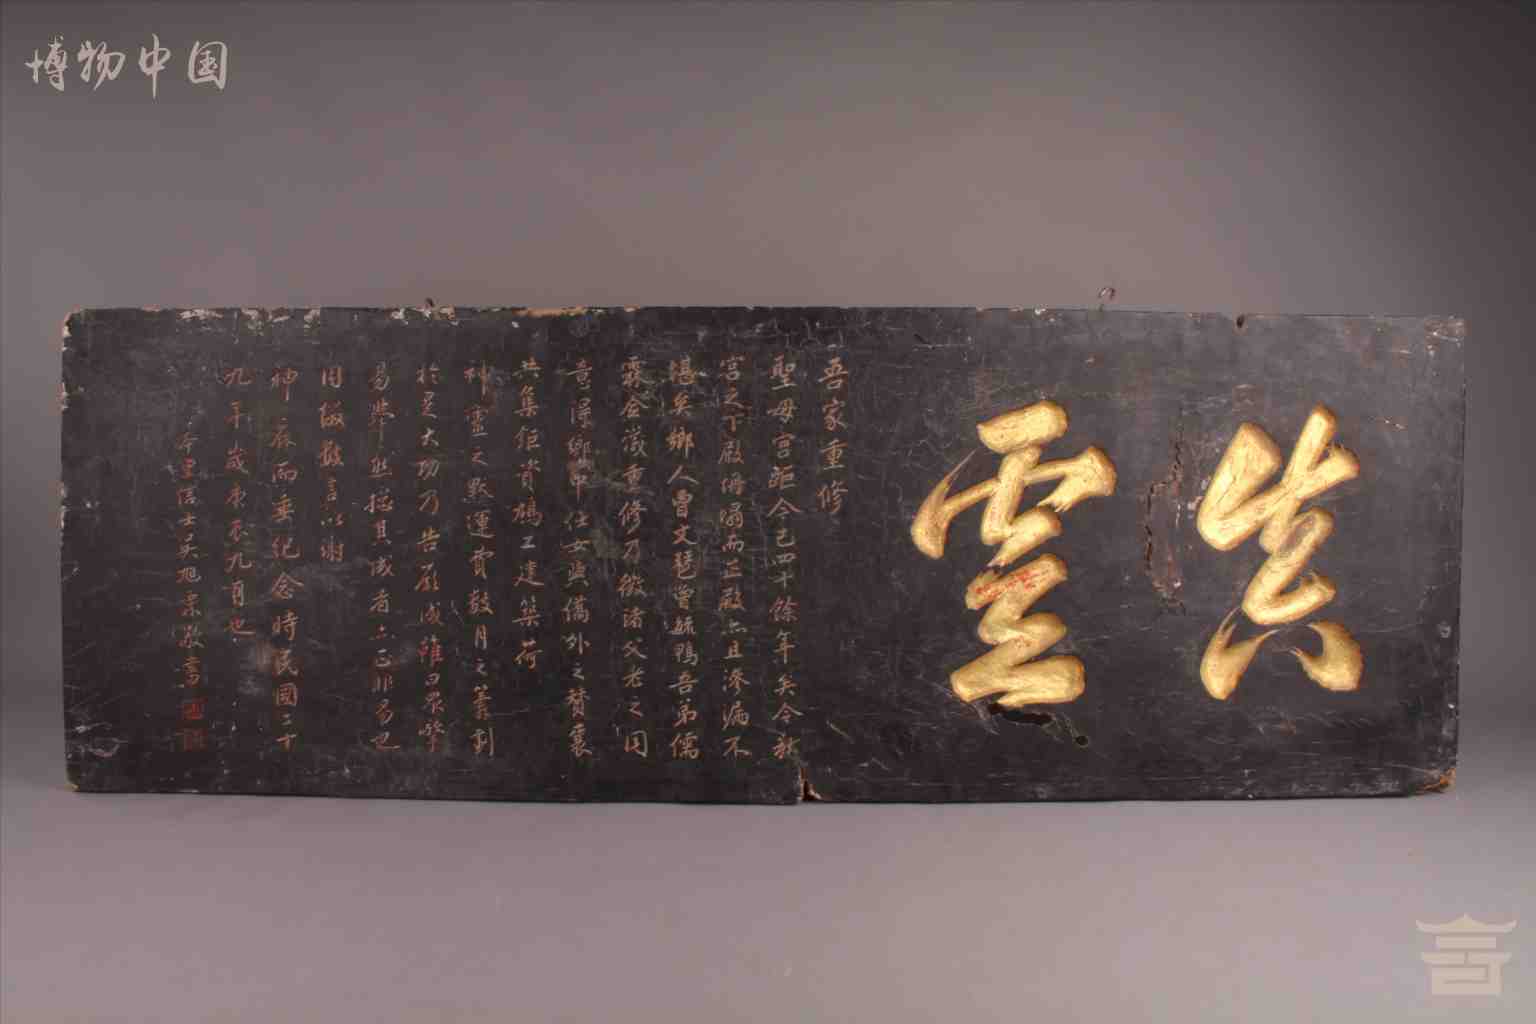 博物中国
紫雲
吾家重修
聖母宮距今已四十餘年矣今新
宮之下殿傾塌而正殿亦且滲漏不
堪矣鄉人曾文琵曾毓鴨吾弟儒
霖僉議重修乃徵諸父老之同
意得鄉中仕女與僑外之贊襄
共集鉅資鳩工建築荷
神靈之默運費數月之籌劃
於是大功乃告厥成雖曰眾擎
易舉然總其成者亦正非易也
用綴數言以謝
神庥而垂紀念時民國二十
九年歲庚辰九月也
本里信士吳旭敬書